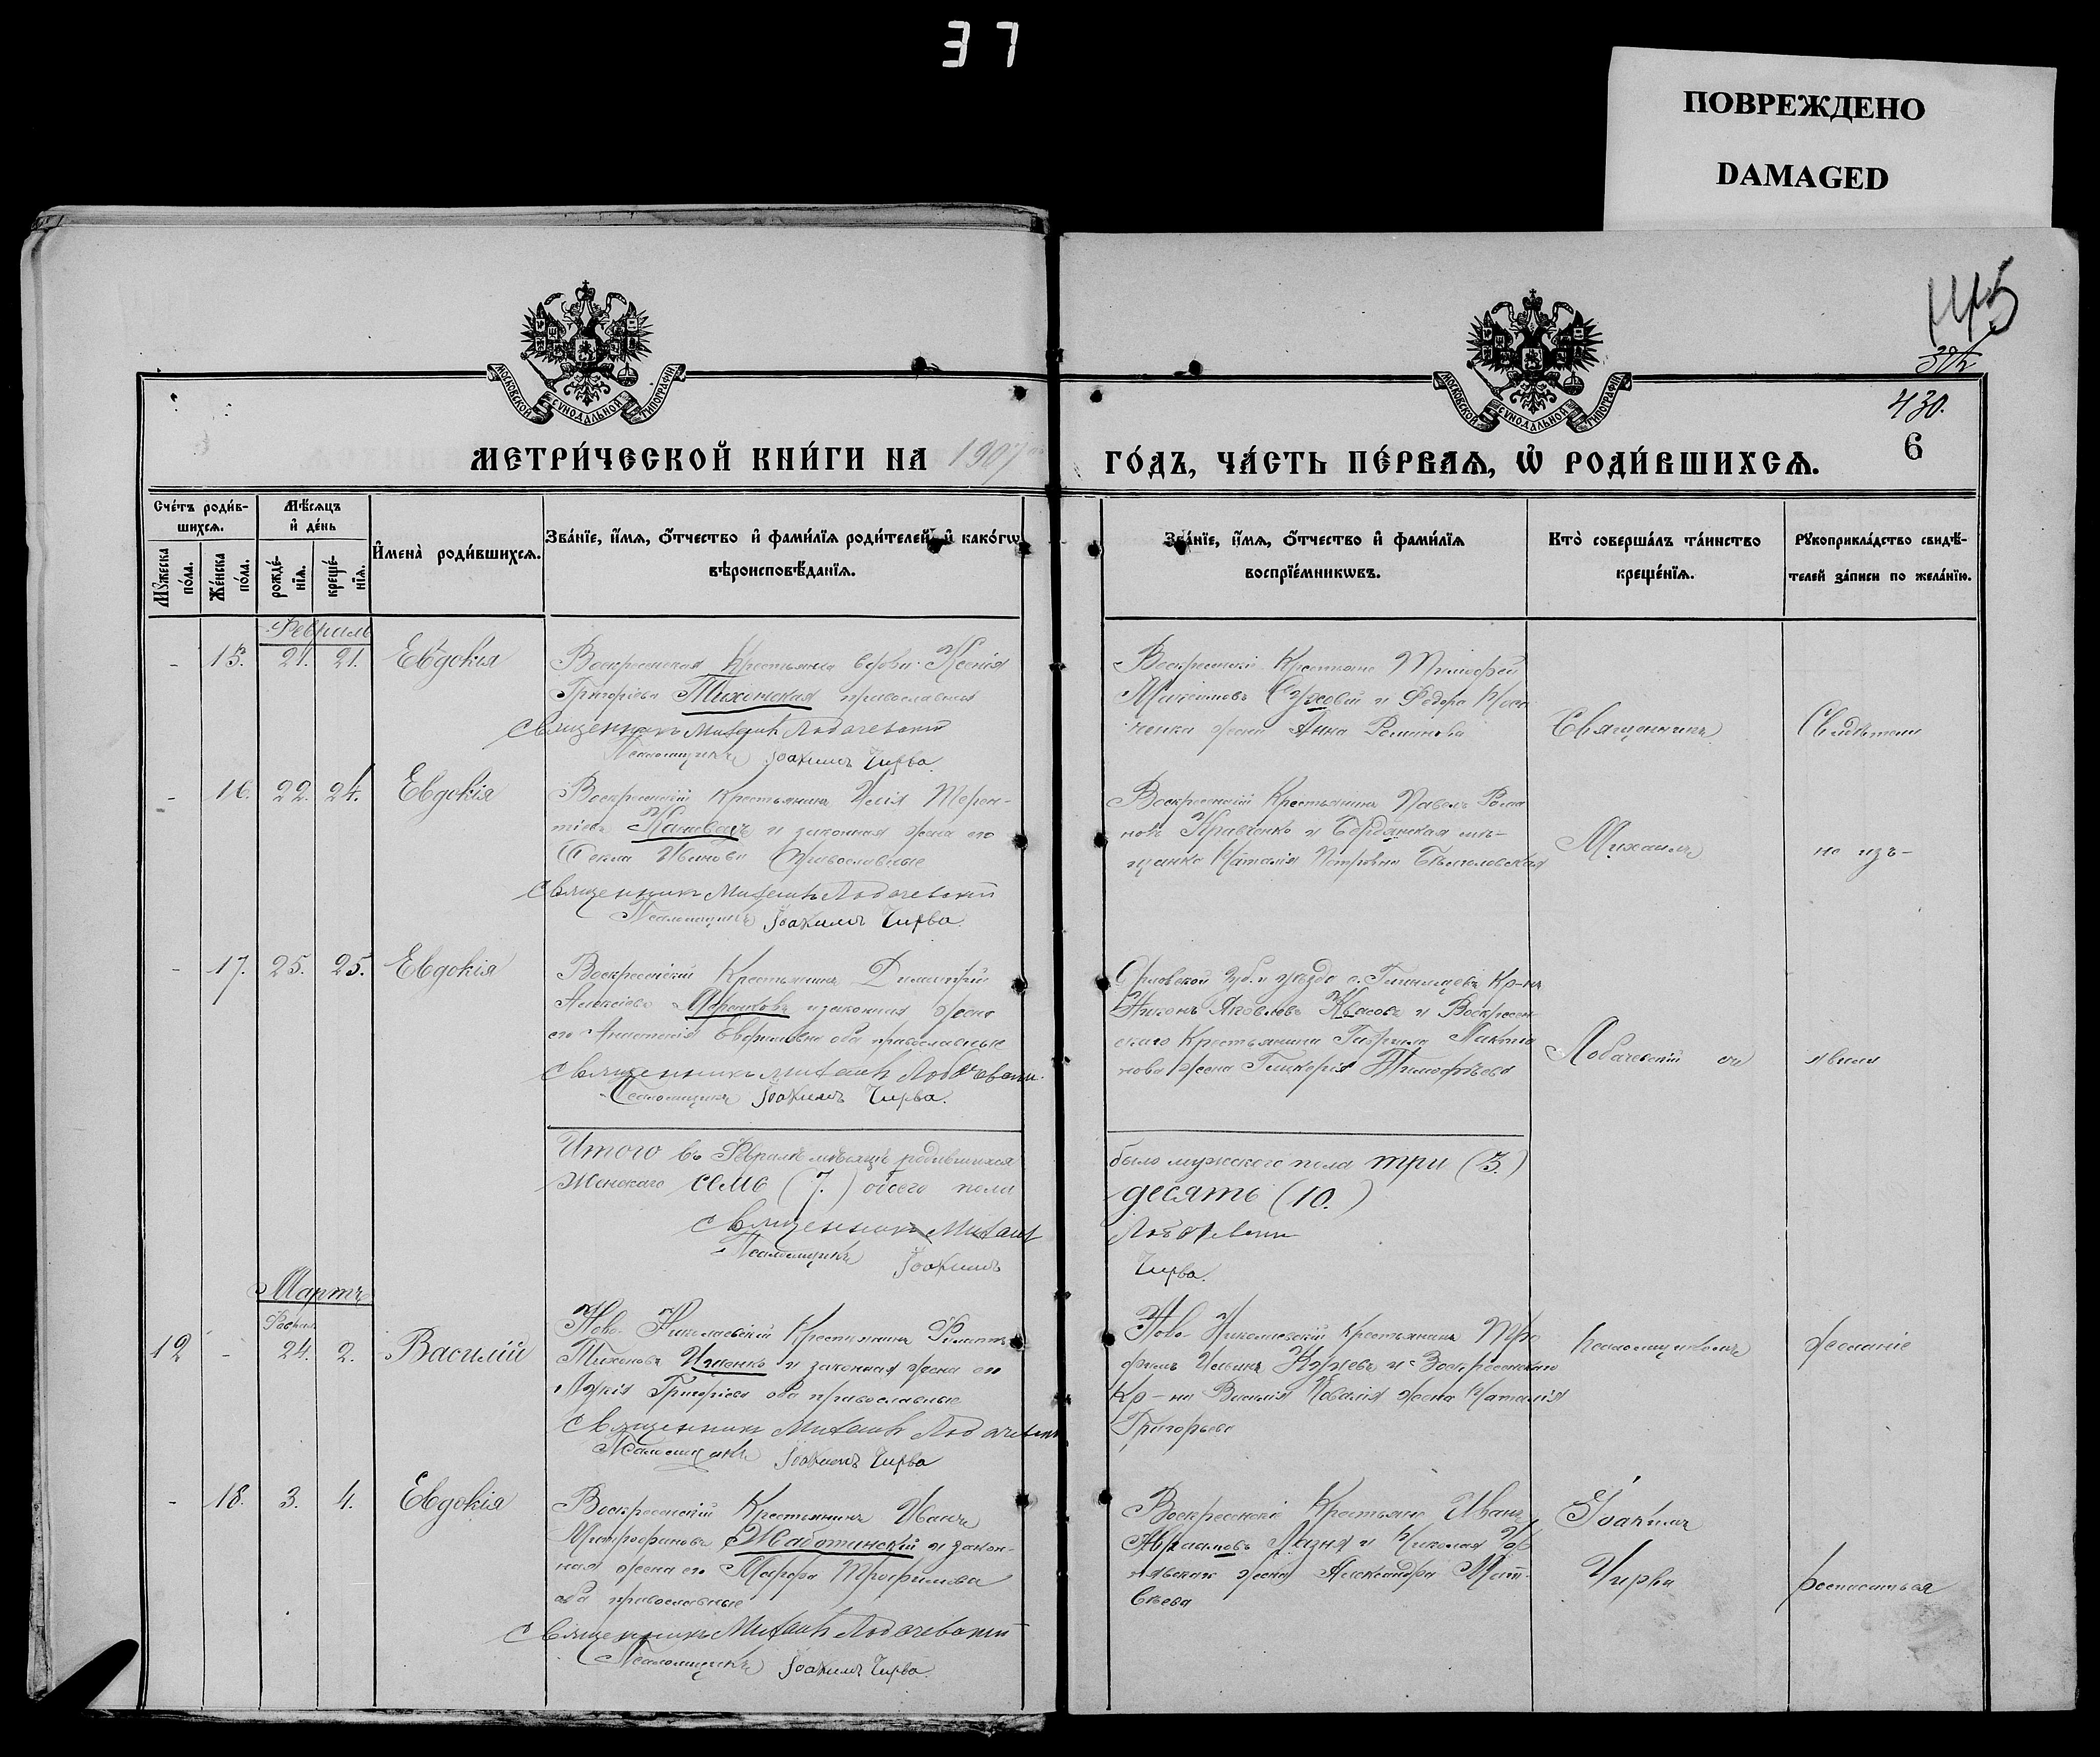 37
ПОВРЕЖДЕНО
DAMAGED
145
430.
6
МОСКОВСКОЙ СѴНОДАЛЬНОЙ ТИПОГРАФІИ
МОСКОВСКОЙ СѴНОДАЛЬНОЙ ТИПОГРАФІИ
МЕТРИ́ЧЕСКОЙ КНИ́ГИ НА 1907
ГО́ДЪ, ЧА́СТЬ ПЕ́РВАѦ, Ѡ҆ РОДИ́ВШИХСѦ.
Сче́тъ роди́в-
шихсѧ.
Мꙋжеска по́ла.
Же́нска по́ла.
Мѣ́сѧцъ
и҆ де́нь
рожде́-
нїѧ.
креще́-
нїѧ.
И҆мена̀ роди́вшихсѧ.
Зва́нїе, и҆́мѧ, ѻ҆́тчество и҆ фами́лїѧ роди́телей, и҆ како́гѡ
вѣроисповѣ́данїѧ.
Зва́нїе, и҆́мѧ, ѻ҆́тчество и҆ фами́лїѧ
воспрїе́мникѡвъ.
Кто̀ соверша́лъ та́инство
креще́нїѧ.
Рꙋкоприкла́дство свидѣ́-
телей за́писи по жела́нїю.
Февраль
- 15. 21. 21. Евдокія
Воскресенская Крестьянка вдова Ксенія
Григорьева Тихонская православная
Священникъ Михаилъ Лобачевскій
Псаломщикъ Іоакимъ Чирва.
Воскресенскіе Крестьяне Тимофей
Максимовъ Суховій и Федора
ченка жена Анна Романова
Священникъ
Свидѣтели
- 16. 22. 24. Евдокія
Воскресенскій Крестьянинъ Илія Терен-
тіевъ и законная жена его
Фекла Иванова православные
Священникъ Михаилъ Лобачевскій
Псаломщикъ Іоакимъ Чирва.
Воскресенскій Крестьянинъ Павелъ Рома
новъ Кравченко и Бердянская мѣ-
щанка Наталія Петровна
Михаилъ
не изъ-
- 17. 25. 25. Евдокія
Воскресенскій Крестьянинъ Димитрій
Алексѣевъ и законная жена
его Анастасія оба православные
Священникъ Михаилъ Лобачевскій.
Псаломщикъ Іоакимъ Чирва.
Орловской губ. и уѣзда с. Кр-нъ
Яковлевъ Квасовъ и Воскресен
скаго Крестьянина Гавриила
нова жена Гликерія Тимофѣева
Лобачевскій съ
явили
Итого въ Февралѣ мѣсяцѣ родившихся
было мужского пола три (3.)
Женскаго семь (7.) обоего пола
десять (10.)
Священникъ Михаилъ
Лобачевскій
Псаломщикъ Іоакимъ
Чирва.
Мартъ
Февраль
12 - 24. 2. Василій
Ново-Николаевскій Крестьянинъ Филиппъ
Тихоновъ и законная жена его
Григорьева оба православные
Священникъ Михаилъ Лобачевскій
Псаломщикъ Іоакимъ Чирва
Ново-Николаевскій Крестьянинъ Тро
фимъ и Воскресенскаго
Кр-на Василія Коваля жена Наталія
Григорьева
Псаломщикомъ
желаніе
- 18. 3. 4. Евдокія
Воскресенскій Крестьянинъ Иванъ
Митрофановъ Жаботинскій и закон-
ная жена его Марфа Трофимова
оба православные
Священникъ Михаилъ Лобачевскій
Псаломщикъ Іоакимъ Чирва.
Воскресенскіе Крестьяне Иванъ
Авраамовъ Лазня и Николая
жена Александра Мат-
вѣева
Іоакимъ
Чирва
росписаться